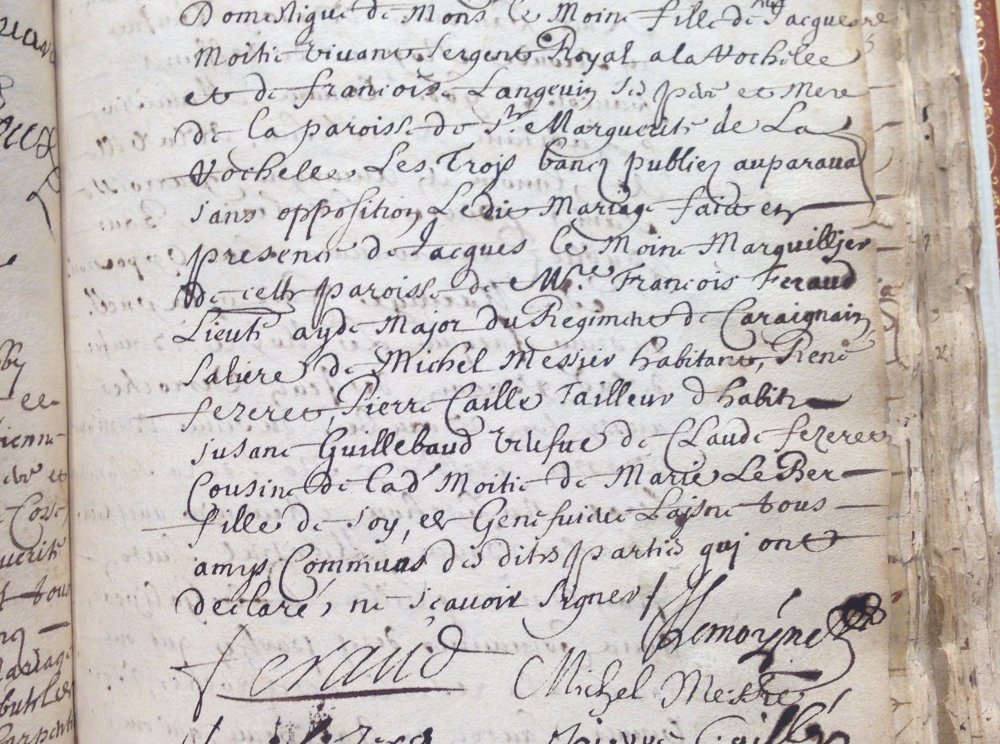 Domestique de Mons le Moine fille de Jacques
Moitié vivant Sergent Royal a la Rochelle
et de francoise Langevin ses pere et mere
de la paroisse de Ste Marguerite de La
Rochelle Les Trois bancz publiez auparava
sans opposition Ledit Mariage faict en
presence de Jacques le Moine Marguillier
de cette paroisse de Mre François Feraud
Lieutt ayde Major du Regiment de Caraignain
de Michel Messier habitant, René
fezeret Pierre Caillé Tailleur d habits
susane Guillebaud veufue de CLaude fezeret
Cousine de Lad Moitié de Marie Le Ber
fille de soy, et Genefuiue Laisné tous
amys Communs des dites parties qui ont
declaré ne scavoir signer
Lemoyne
Feraud
Michel Messie
Caillé